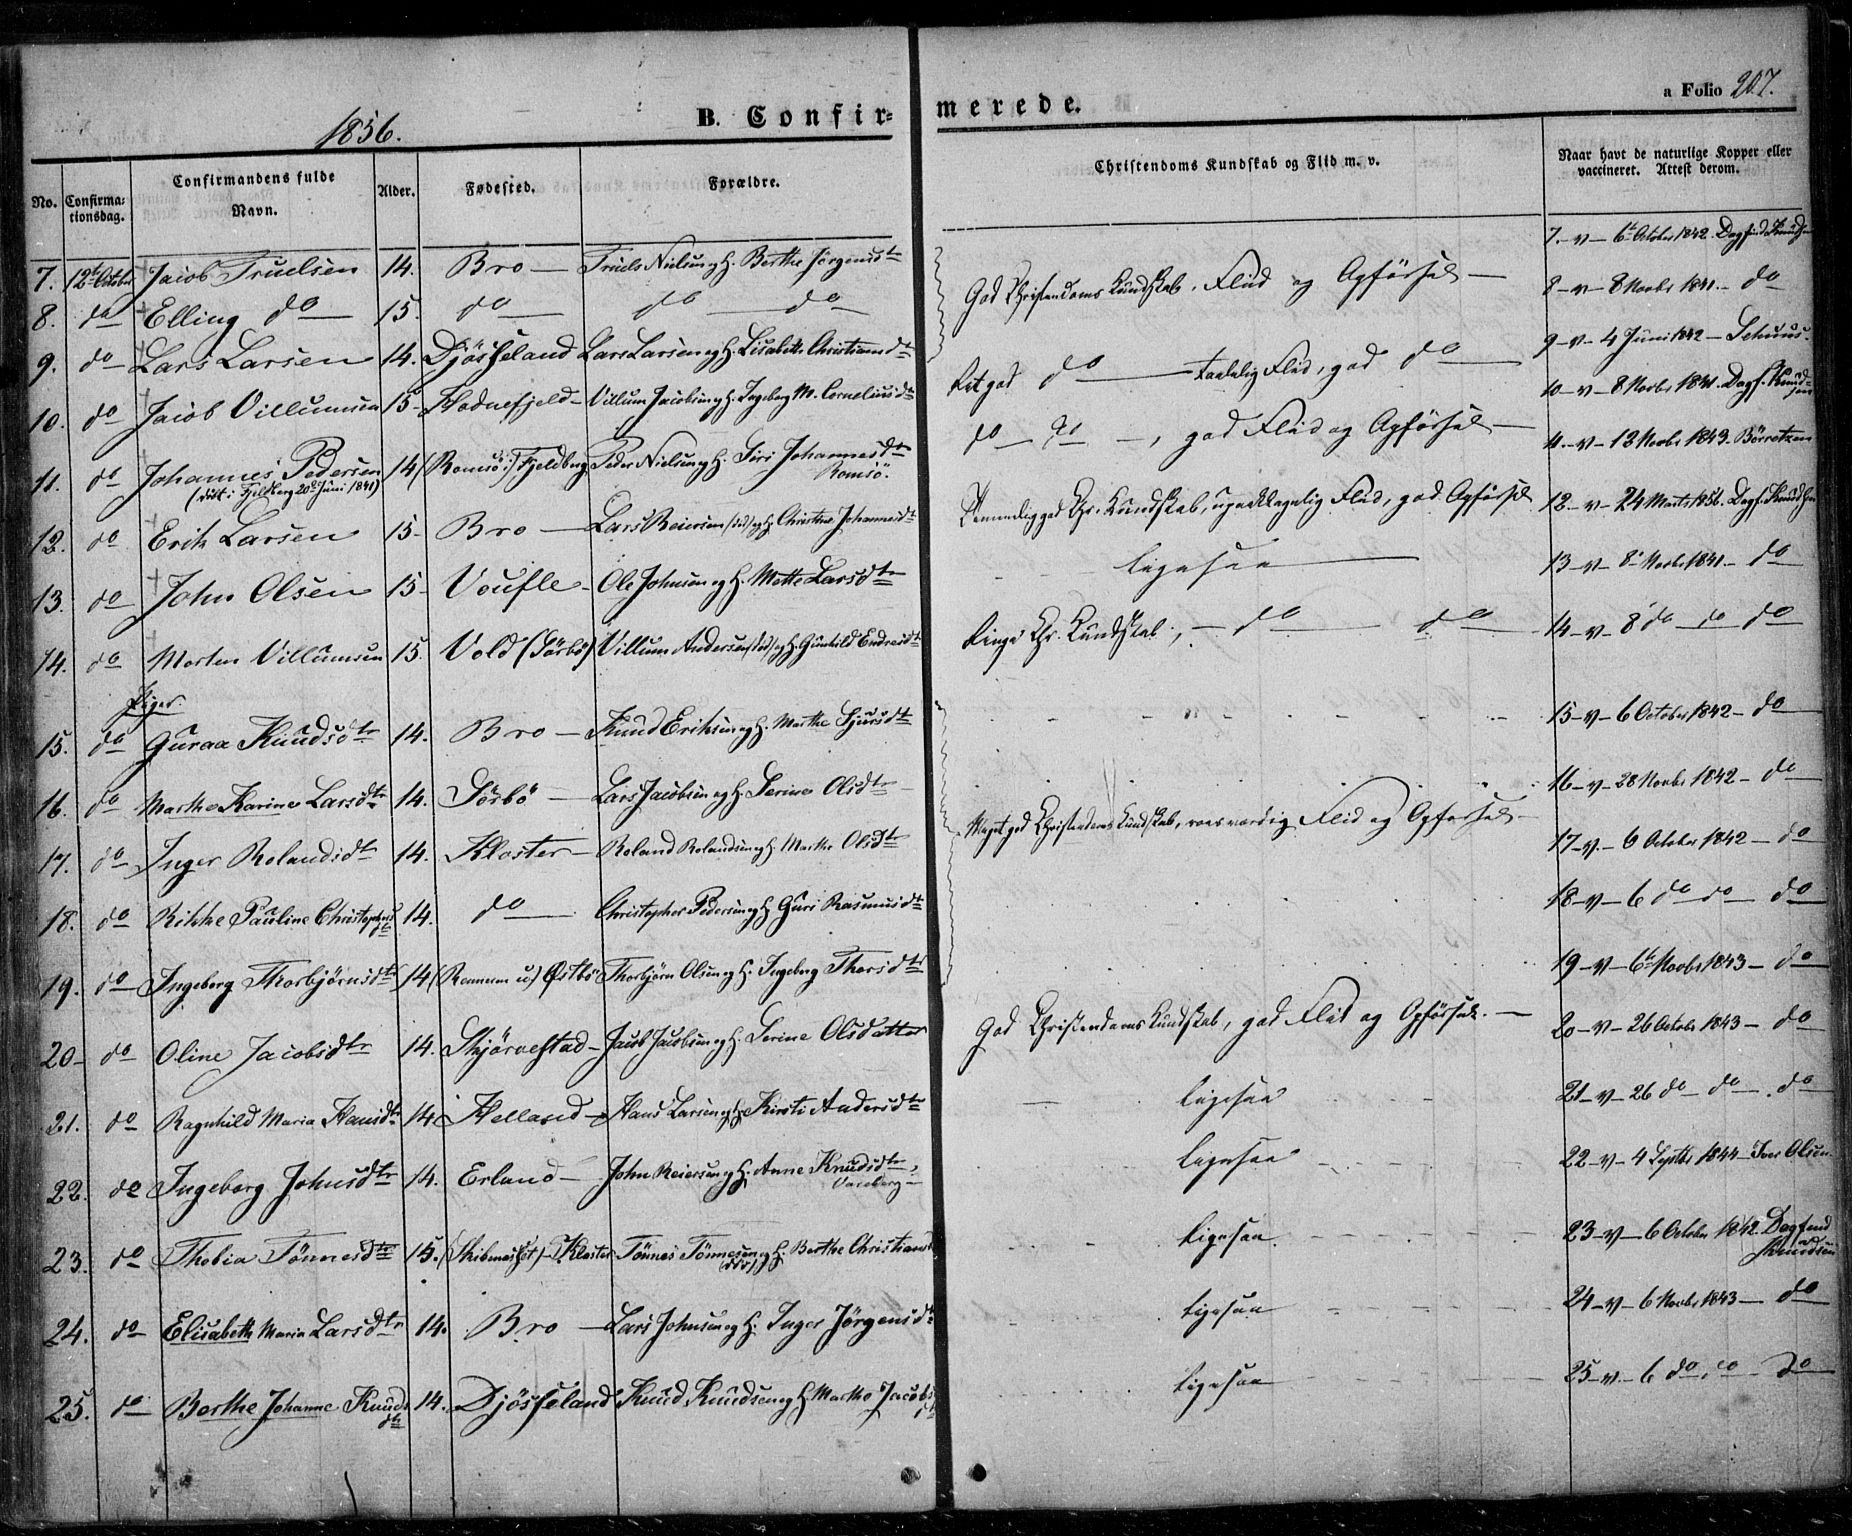 1856.
B. Confir-
merede.
a Folio 207.
No.
Confirma-
tionsdag.
Confirmandens fulde
Navn.
Alder.
Fødested.
Forældre.
Christendoms Kundskab og Flid m. v.
Naar havt de naturlige Kopper eller
vaccineret. Attest derom.
7. 12te October Jacob Truelsen 14. Bro — Truels Nielsen og H. Berthe Jørgensdtr
God Christendoms Kundskab, Flid og Opførsel —
7. v — 6te October 1842. Dagfind Knudsen
8. do Elling do — 15. do — do — do —
8 — v — 8 Novbr 1841. — do
9. do Lars Larsen 14. Djösfseland Lars Larsen og H. Lisabeth Christiansdtr
Ret god do — taalelig Flid, god do —
9 — v — 4 Juni 1842 — Schuus.
10. do Jacob Villumsen 15 — Hodnefjeld — Villum Jacobsen og H. Ingeborg M. Corneliusdtr
do — do —, god Flid og Opførsel —
10 — v — 8 Novbr 1841. Dagf. Knud-
sen
11. do Johannes Pedersen 14 (Romsö i) Fjeldberg Peder Nielsen og H. Siri Johannesdtr
(döbt i Fjeldberg 20de Juni 1841)
Romsö.
Temmelig god Chr. Kundskab, upaaklagelig Flid, god Opførsel
11. — v — 12 Novbr 1843. Börretzen
12. do Erik Larsen 15 — Bro — Lars Reiersen (död) og H. Christine Johannesdtr
ligesaa —
12 — v — 24 Marts 1852. Dagf. Knudsen
13. do John Olsen 15 — Voufle — Ole Johnsen og H. Mette Larsdtr
13 — v — 8de Novbr 1841. — do
14. do Morten Villumsen 15. Vold (Sörbö) Villum Andersen (död) og H. Gunhild Endresdtr
Ringe Chr. Kundskab, — do — do —
14 — v — 8 do — do do
Piger.
15. do Guroa Knudsdtr 14. Bro — Knud Eriksen og H. Marthe Sjursdtr
15 — v — 6 October 1842 — do
16. do Marthe Karine Larsdtr 14. Sörbö — Lars Jacobsen og H. Serine Olsdtr
16 — v — 28 Novbr 1842 — do
Meget god Christendoms Kundskab, roesværdig Flid og Opførsel —
17. do Inger Rolandsdtr 14. Kloster — Roland Rolandsen og H. Marthe Olsdtr
17 — v. — 6 October 1842 — do
18. do Rikke Pauline Christophersdtr 14. do — Christopher Pedersen og H. Guri Rasmusdtr
18 — v — 6 do do — do
19. do Ingeborg Thorbjørnsdtr 14 (Rennesø u) Østbö Thorbjørn Olsen og H. Ingeborg Thorsdtr
19 — v — 6te Novbr 1843 — do
20 — do Oline Jacobsdtr 14. Skjörvestad — Jacob Jacobsen og H. Serine Olsdatter
God Christendoms Kundskab, god Flid og Opførsel. —
20 — v — 26 Octobr 1843 — do
21. do Ragnhild Maria Hansdtr 14. Helland — Hans Larsen og H. Kirsti Andersdtr
ligesaa
21 — v — 26 do — do — do
22. do Ingeborg Johnsdtr 14. Erland — John Reiersen og H. Anne Knudsdtr,
Vareberg —
ligesaa
22 — v — 4 Septbr 1844 — Iver Olsen.
23. do Thobia Tönnesdtr 15. Kloster Tönnes Tönnesen og H. Berthe Christiansd
ligesaa
23 — v — 6 October 1842 Dagfind
Knudsen
24. do Elisabeth Maria Larsdtr 14. Bro — Lars Johnsen og H. Inger Jörgensdtr
ligesaa
24 — v — 6 Novbr 1843 — do
25. do Berthe Johanne Knuds 14. Djösfseland Knud Knudsen og H. Marthe Jacobs
dtr
ligesaa
25 — v — 6 do, do — do